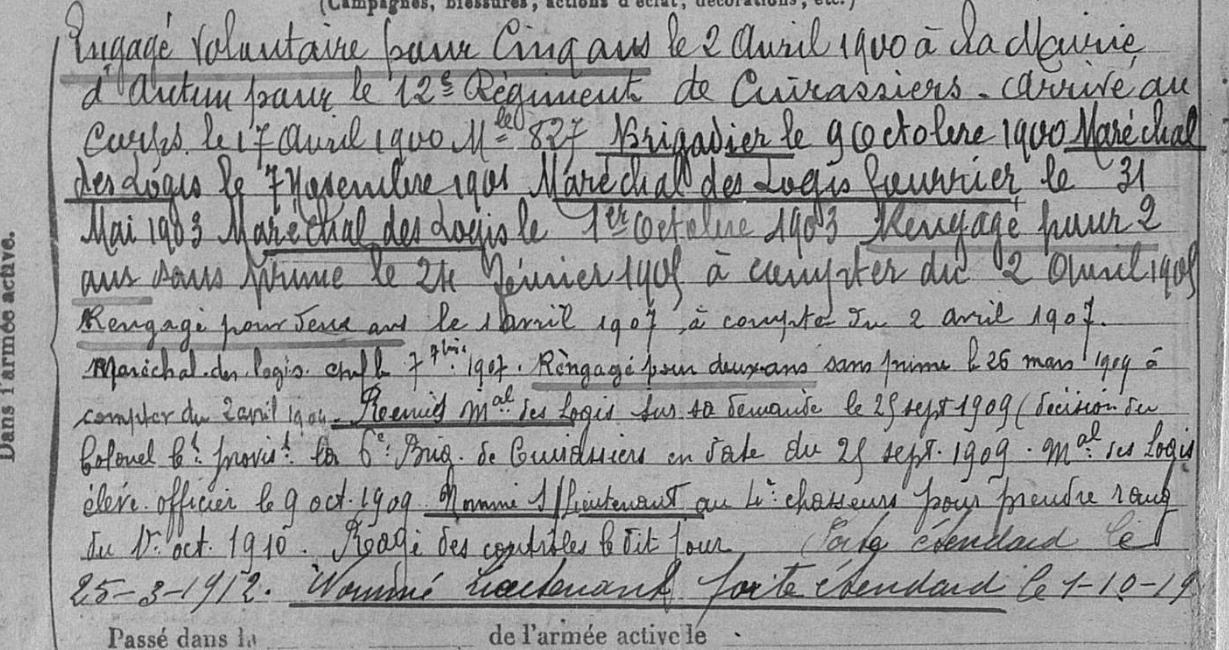 (Campagnes, blessures, actions d'éclat, décorations, etc.)
Engagé volontaire pour Cinq ans le 2 Avril 1900 à la Mairie
d'Autun pour le 12e Régiment de Cuirassiers - Arrivé au
Corps le 17 Avril 1900 Mle 827 Brigadier le 9 Octobre 1900 Maréchal
des Logis le 7 Novembre 1901 Maréchal des Logis fourrier le 31
Mai 1903 Maréchal des Logis le 1er Octobre 1903 Rengagé pour 2
ans sans prime le 24 février 1905 à compter du 2 Avril 1905
Rengagé pour deux ans le 1 avril 1907, à compter du 2 avril 1907.
Maréchal des logis chef le 7 7bre 1907. Rengagé pour deux ans sans prime le 26 mars 1909 à
compter du 2 avril 1909. Remis Mal des Logis sur sa demande le 25 sept 1909 (décision du
Colonel Ct provist la 6e Brig. de Cuirassiers en date du 25 sept. 1909. Mal des Logis
élève officier le 9 oct. 1909 Nommé S/Lieutenant au 4e chasseurs pour prendre rang
du 1er oct. 1910. Rayé des contrôles le dit jour. Porte étendard le
25-3-1912. Nommé Lieutenant porte étendard le 1-10-19
Dans l'armée active.
Passé dans la de l'armée active le